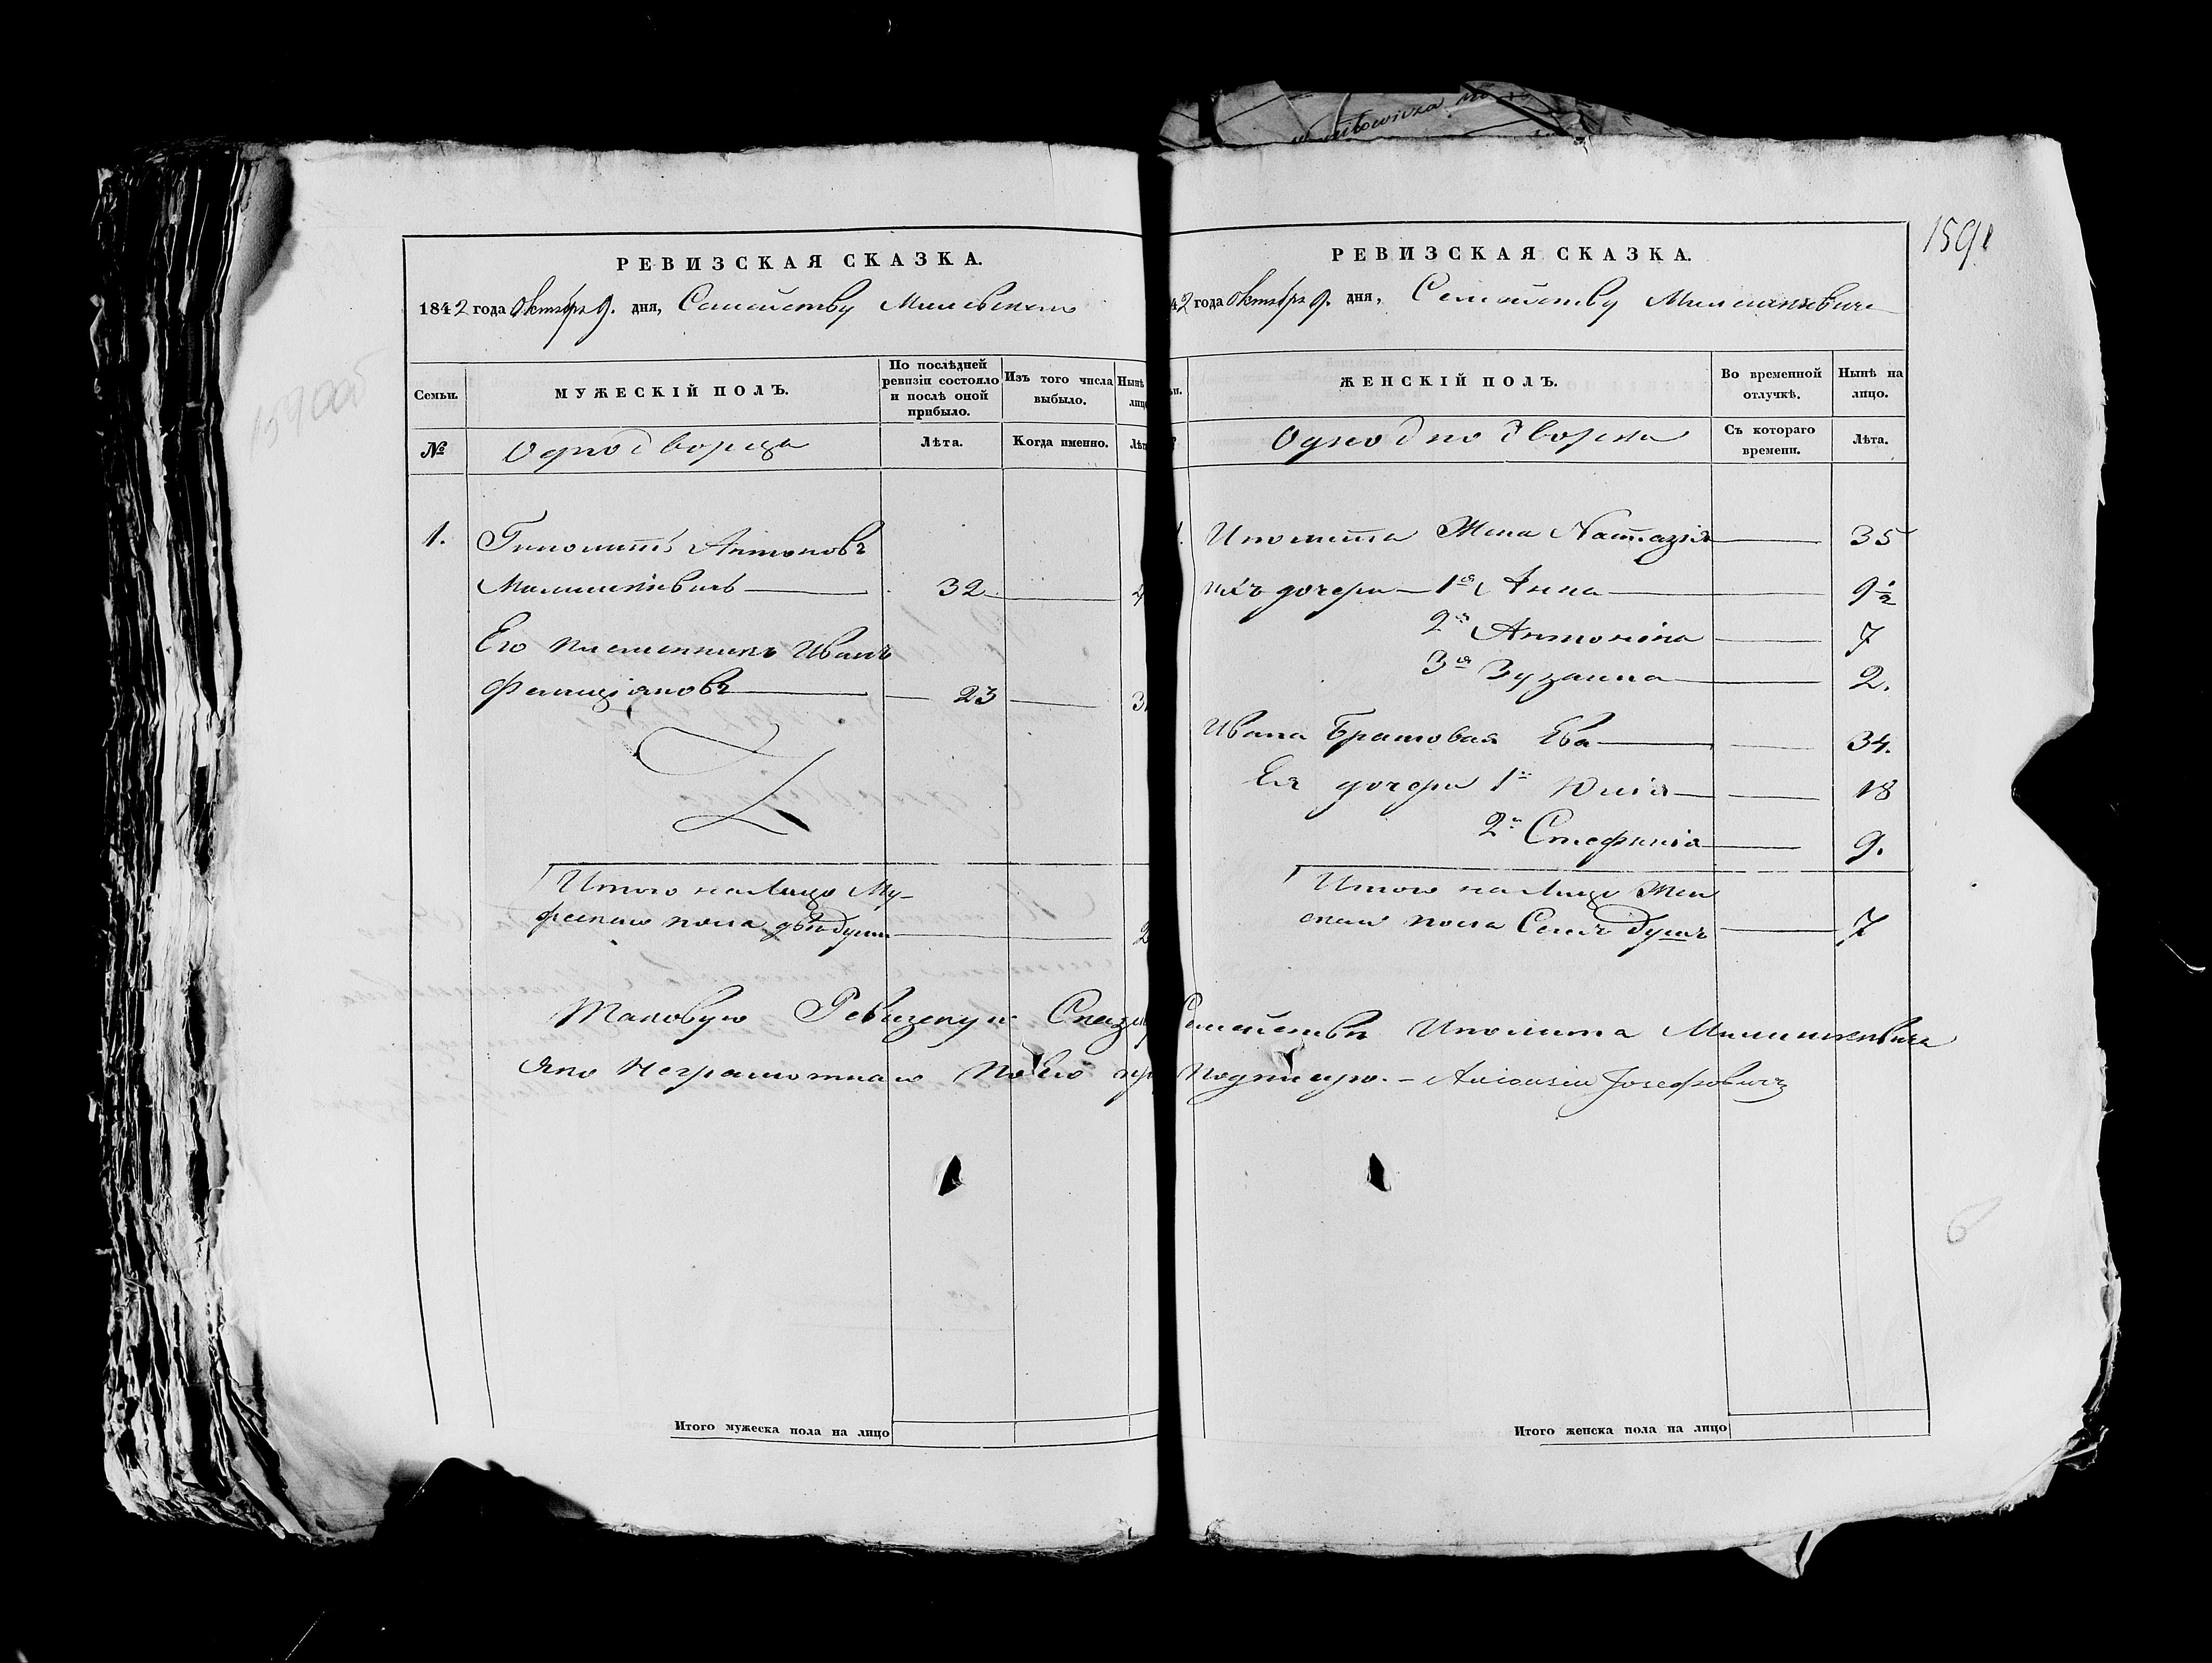 РЕВИЗСКАЯ СКАЗКА.
1842 года Октября 9. дня, Семейству
Семьи.
МУЖЕСКІЙ ПОЛЪ.
По послѣдней ревизіи состояло и послѣ оной прибыло.
Изъ того числа выбыло.
Нынѣ
лицо
№
Однодворца
Лѣта.
Когда именно.
Лѣт
1.
Антоновъ
32
Его племенникъ Иванъ
Фелиціяновъ
23
Итого на Лицо Му-
жескаго пола двѣ души
2
Таковую Ревизскую Сказку
яко Неграмотнаго по Его
Итого мужеска пола на лицо
1591
РЕВИЗСКАЯ СКАЗКА.
42 года Октября 9. дня, Семейству
ЖЕНСКІЙ ПОЛЪ.
Во временной отлучкѣ.
Нынѣ на лицо.
Съ котораго времени.
Лѣта.
Иполита Жена Настазія 35
ихъ дочери 1я Анна 9½
2я Антонина 7
3я Зузанна 2.
Ивана Братовая Ева 34.
Ея дочери 1я Юлія 18
2я Стефанія 9.
Итого на Лицо Жен
скаго пола Семь душъ 7
Семейства Иполита
Подписую.
Итого женска пола на лицо